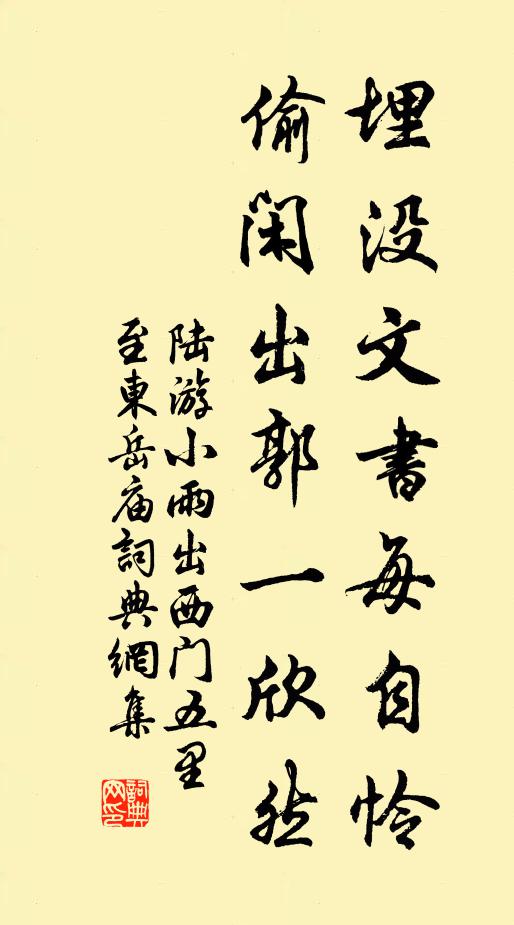 埋没文書每自怜
偷閑出郭一欣然
陆游小雨出西门五里
至東岳庙詞典網集
詞典
网印